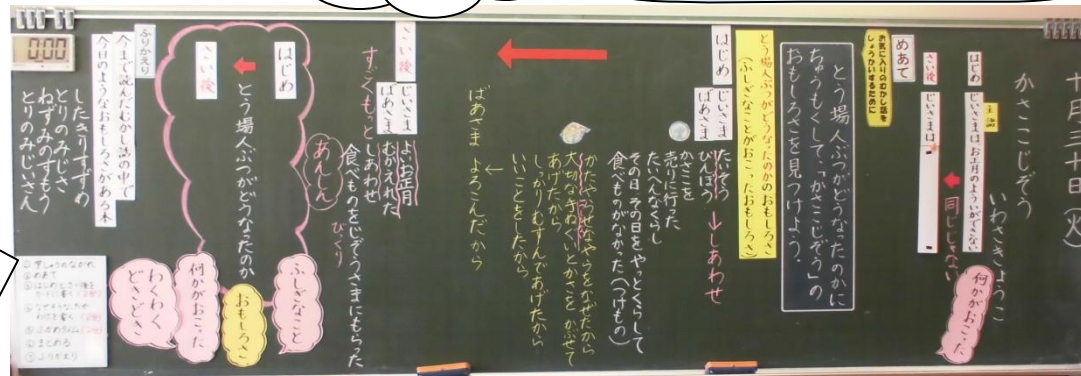 十月三十日(火)
かさこじぞう
いわさききょうこ
はじめ
主語
じいさまは、お正月のよういができない
同じじゃない
さい後
じいさまは
何かがおこった
めあて
お気に入りのむかし話を
しょうかいするために
とう場人ぶつがどうなったかに
ちゅうもくして、「かさこじぞう」の
おもしろさを見つけよう。
とう場人ぶつがどうなったのかのおもしろさ
(ふしぎなことがおこったおもしろさ)
はじめ
じいさま
ばあさま
たいそう
びんぼう
→しあわせ
かさこを
売りに行った
たいへんなくらし
その日その日をやっとくらして
食べものがなかった(つけもの)
かたやらせなやらをなぜたから
大切なてぬぐいとかさを かぶせて
あげたから
しっかりむすんであげたから
いいことをしたから
ばあさま よろこんだから
さい後
じいさま
ばあさま
よいお正月
むかえれた
すごくもっとしあわせ
食べものをじぞうさまにもらった
びっくり
あんしん
はじめ
さい後
とう場人ぶつがどうなったのか
ふしぎなこと
おもしろさ
何かがおこった
わくわく
どきどき
ふりかえり
今まで読んだむかし話の中で
今日のようなおもしろさがある本
したきりすずめ
とりのみじいさ
ねずみのすもう
とりのみじいさん
0:00
①学しゅうのながれ
②めあて
⑥まとめる
⑦ふりかえり